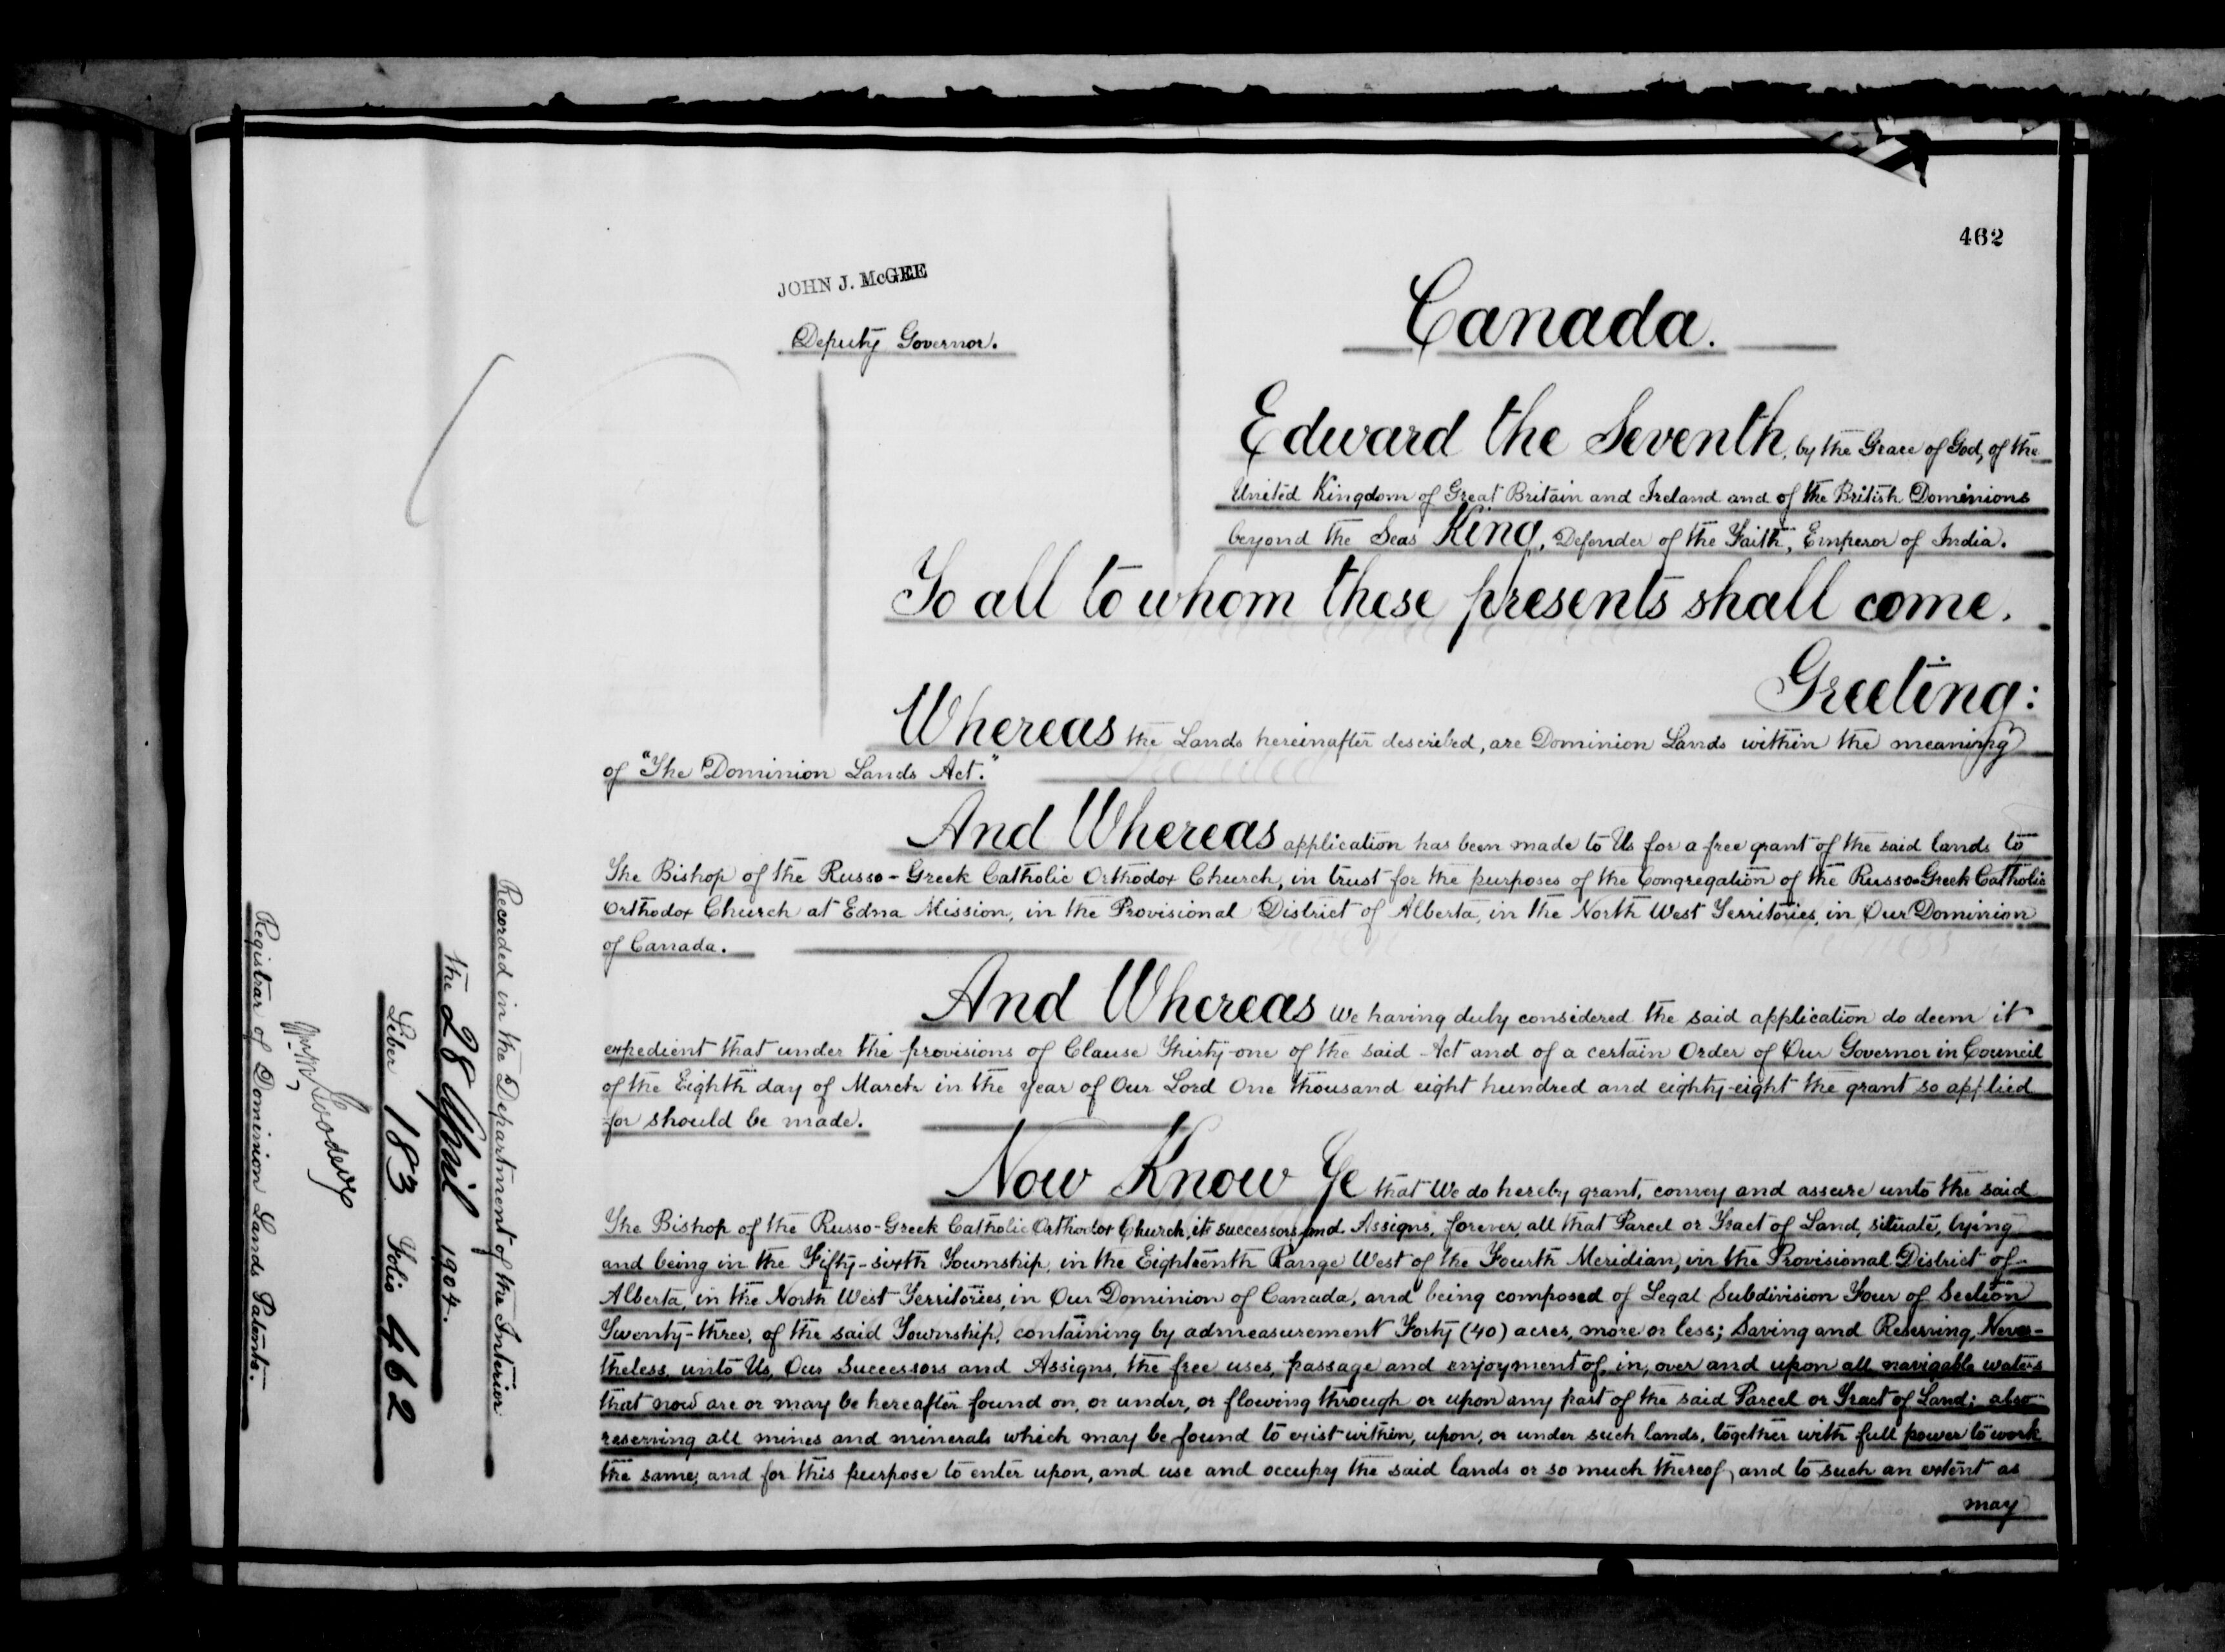 462
JOHN J. McGEE
Deputy Governor.
Canada.
Edward the Seventh, by the Grace of God, of the
United Kingdom of Great Britain and Ireland and of the British Dominions
beyond the Seas King, Defender of the Faith, Emperor of India.
To all to whom these presents shall come,
Greeting:
Whereas the Lands hereinafter described, are Dominion Lands within the meaning
of "The Dominion Lands Act."
And Whereas application has been made to Us for a free grant of the said lands to
The Bishop of the Russo-Greek Catholic Orthodox Church, in trust for the purposes of the Congregation of the Russo-Greek Catholic
Orthodox Church at Edna Mission, in the Provisional District of Alberta, in the North West Territories, in Our Dominion
of Canada.
And Whereas We having duly considered the said application do deem it
expedient that under the provisions of Clause Thirty-one of the said Act and of a certain Order of Our Governor in Council
of the Eighth day of March in the year of Our Lord One thousand eight hundred and eighty-eight the grant so applied
for should be made.
Now Know Ye that We do hereby grant, convey and assure unto the said
The Bishop of the Russo-Greek Catholic Orthodox Church, its successors and Assigns, forever, all that Parcel or Tract of Land, situate, lying
and being in the Fifty-sixth Township, in the Eighteenth Range West of the Fourth Meridian, in the Provisional District of
Alberta, in the North West Territories, in Our Dominion of Canada, and being composed of Legal Subdivision Four of Section
Twenty-three, of the said Township, containing by admeasurement Forty (40) acres, more or less; Saving and Reserving, Never-
theless, unto Us, Our Successors and Assigns, the free uses, passage and enjoyment of, in, over and upon all navigable waters
that now are or may be hereafter found on, or under, or flowing through or upon any part of the said Parcel or Tract of Land; also
reserving all mines and minerals which may be found to exist within, upon, or under such lands, together with full power to work
the same, and for this purpose to enter upon, and use and occupy the said lands or so much thereof, and to such an extent as
may
Recorded in the Department of the Interior
the 28 April 1904.
Liber 183 Folio 462
Registrar of Dominion Lands Patents.